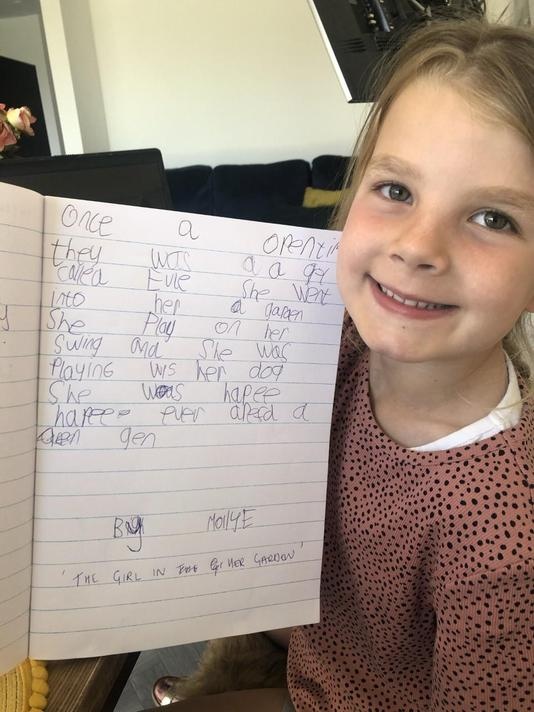 Once a opentin
they was a a ger
called Evie She went
into her a garden
She Play on her
Swing and She was
Playing wis her dog
She was hapee
hapee ever aheed a
gen
By Mollye
'THE GIRL IN HER GARDEN'